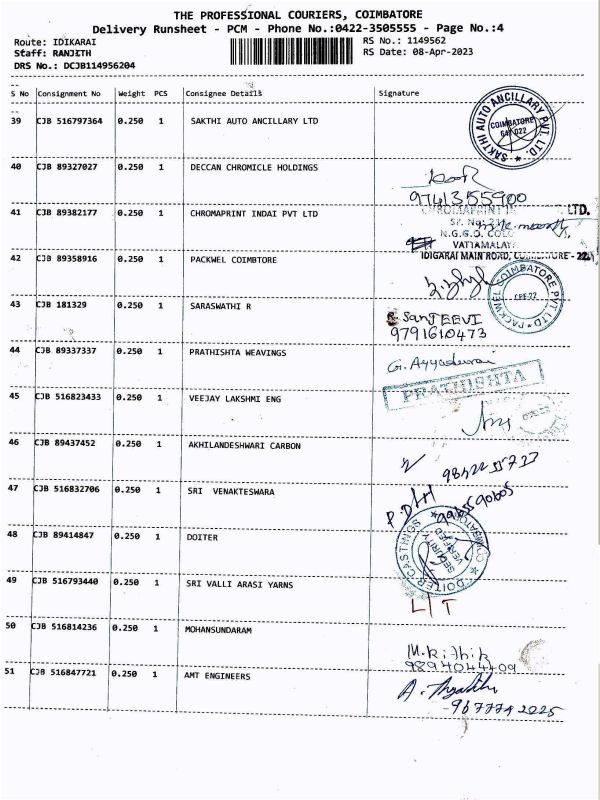 THE PROFESSIONAL COURIERS, COIMBATORE
Delivery Runsheet - PCM - Phone No.:0422-3505555 - Page No.:4
Route: IDIKARAI RS No.: 1149562
Staff: RANJITH RS Date: 08-Apr-2023
DRS No.: DCJB114956204
S No Consignment No Weight PCS Consignee Details Signature
39 CJB 516797364 0.250 1 SAKTHI AUTO ANCILLARY LTD
SAKTHI AUTO ANCILLARY PVT LTD.
COIMBATORE
40 CJB 89327027 0.250 1 DECCAN CHROMICLE HOLDINGS
9741355900
41 CJB 89382177 0.250 1 CHROMAPRINT INDAI PVT LTD
CHROMAPRINT LTD.
N.G.G.O. COLO
VATTAMALAY
IDIGARAI MAIN ROAD,
42 CJB 89358916 0.250 1 PACKWEL COIMBTORE
PACKWEL COIMBATORE PVT LTD
CBE-22
43 CJB 181329 0.250 1 SARASWATHI R
S. SANJEEVI
9791610473
44 CJB 89337337 0.250 1 PRATHISHTA WEAVINGS
G. Ayyadurai
PRATHISHTA
45 CJB 516823433 0.250 1 VEEJAY LAKSHMI ENG
46 CJB 89437452 0.250 1 AKHILANDESHWARI CARBON
47 CJB 516832706 0.250 1 SRI VENAKTESWARA
48 CJB 89414847 0.250 1 DOITER
DOITER CASTINGS
SECURITY
VERIFIED
49 CJB 516793440 0.250 1 SRI VALLI ARASI YARNS
L/T
50 CJB 516814236 0.250 1 MOHANSUNDARAM
9894044409
51 CJB 516847721 0.250 1 AMT ENGINEERS